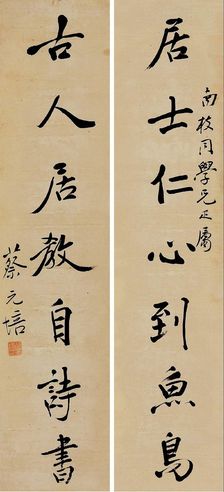 居士仁心到魚鳥
南枝同學兄正屬
古人居教自詩書
蔡元培